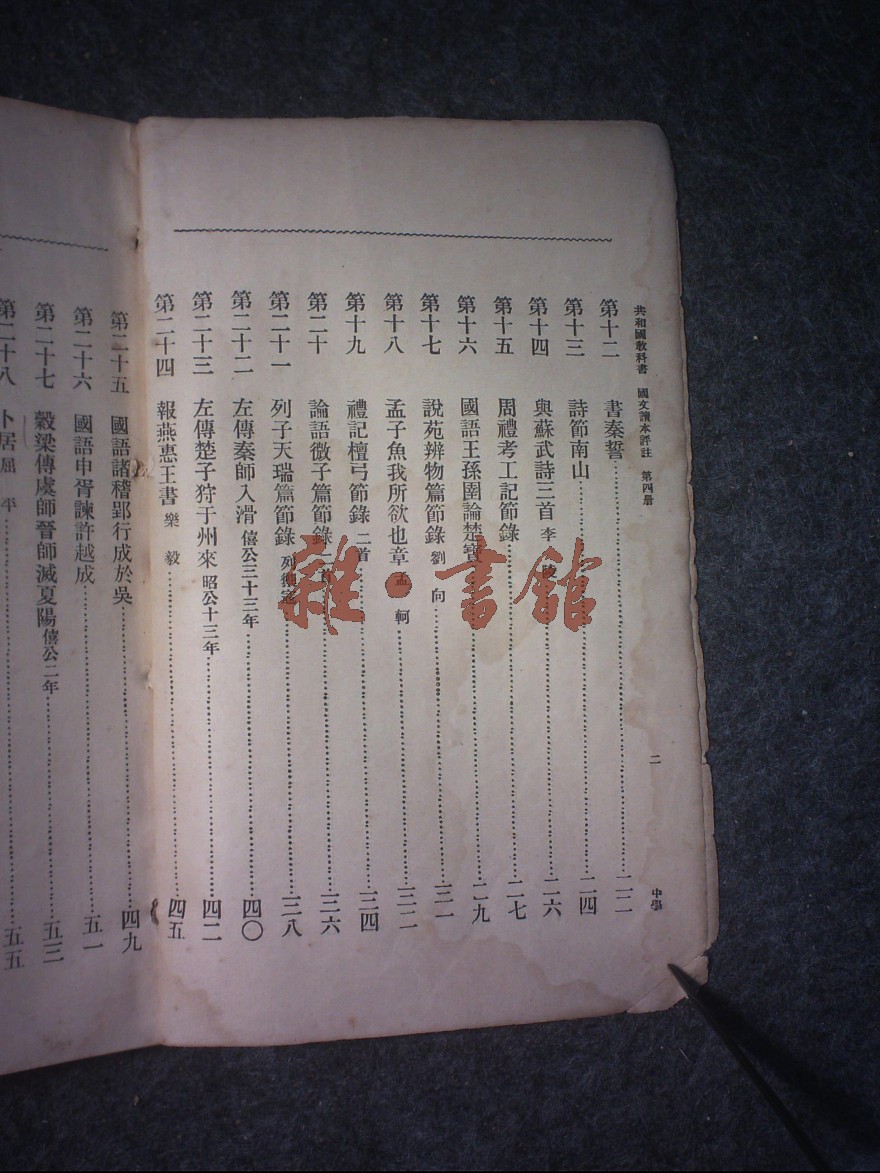 共和國教科書 國文讀本評註 第四册 二 中學
第十二 書秦誓 二二
第十三 詩節南山 二四
第十四 與蘇武詩三首 李陵 二六
第十五 周禮考工記節錄 二七
第十六 國語王孫圉論楚寶 二九
第十七 說苑辨物篇節錄 劉向 三一
第十八 孟子魚我所欲也章 孟軻 三二
第十九 禮記檀弓節錄 二首 三四
第二十 論語微子篇節錄 二首 三六
第二十一 列子天瑞篇節錄 列禦寇 三八
第二十二 左傳秦師入滑 僖公三十三年 四〇
第二十三 左傳楚子狩于州來 昭公十三年 四二
第二十四 報燕惠王書 樂毅 四五
第二十五 國語諸稽郢行成於吳 四九
第二十六 國語申胥諫許越成 五一
第二十七 穀梁傳虞師晉師滅夏陽 僖公二年 五三
第二十八 卜居 屈平 五五
雜·書館